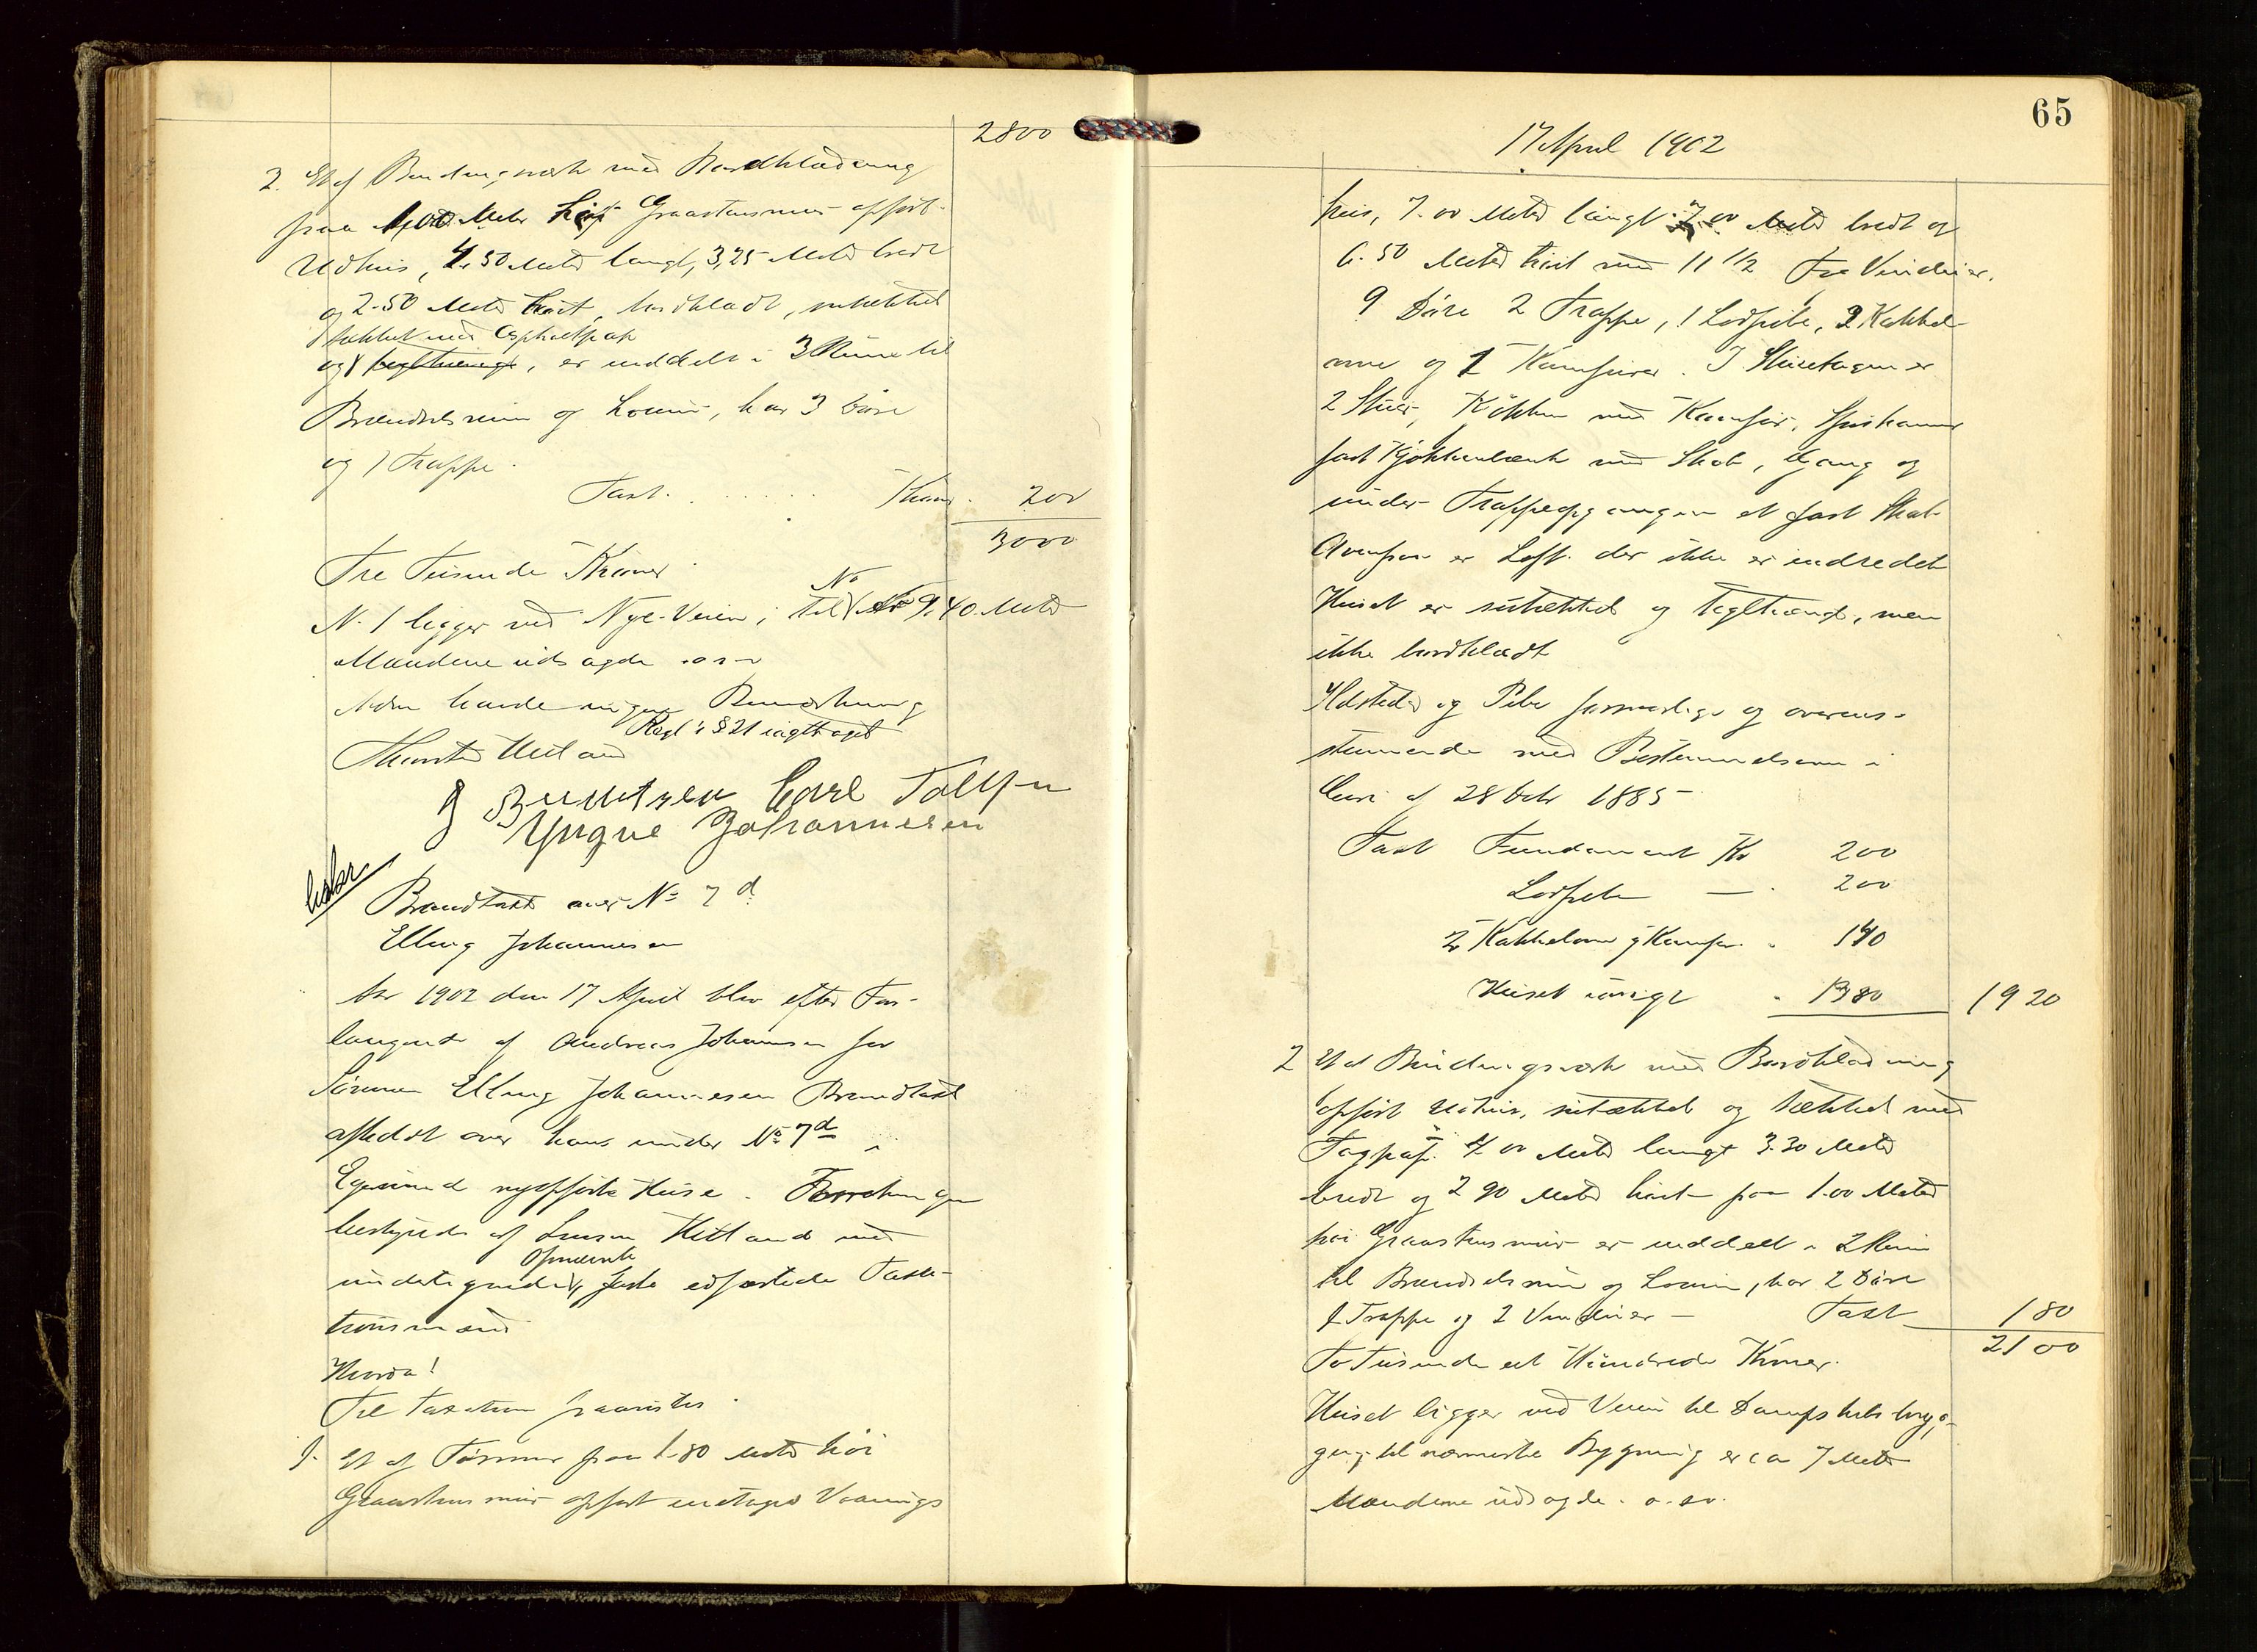 2800
2. Et af Bindingsværk med Bordklædning
paa 1,00 Meter høi Graastensmur opført
Udhus, 4.50 Meter langt, 3,25 Meter bredt
og 2.50 Meter høit, bordklædt, sutækket
tækket med Asphaltpap
og tegltængt, er inddelt i 3 Rum til
Brændselsrum og Lokum, har 3 Døre
og 1 Trappe.
Taxt. . . . . . . Kroner. 200
3000
Tre Tusinde Kroner
No
N. 1 ligger ved Nye-Veien; til 9.40 Meter
Mændene udsagde o.s.v
Ingen Bemærkning
Regl's § 21 iagttaget
Hetland
J Berentzen Carl Tollefsen
Yngve Johannesen
Brandtaxt over No 7 d
Elling Johannesen
Aar 1902 den 17 April blev efter For-
langende af Andreas Johannesen for
Sønnen Elling Johannesen Brandtaxt
afholdt over hans under No 7d i
Egersund nyopførte Huse. Forretningen
bestyredes af Hetland med
Opnævnte
undertegnede faste edfæstede Taxt-
tionsmænd
Hvorda!
Til Taxation paavistes.
1. Et af Tømmer paa 1.80 Meter høi
Graastensmur opført enetages Vaanings
65
17 April 1902
hus, 7.00 Meter langt 7.00 Meter bredt og
6.50 Meter høit med 11 1/2 Fag Vinduer,
9 Døre 2 Trappe, 1 Lodpibe, 2 Kakkel-
ovne og 1 Komfurer. I Stuetagen er
2 Stuer, Køkken med Komfur, Spiskammer
fast Kjøkkenbænk med Skab, Gang og
under Trappeopgangen et fast Skab
Ovenpaa er Loft der ikke er indredet
Huset er sutækket og tegltængt, men
ikke bordklædt
Ildsteder og Pibe forsvarlige og overens-
stemmende med Bestemmelserne i
Circ af 28 Octr 1885
Taxt Fundament Kr 200
Lodpibe — 200
2 Kakkelovne 1 Komfur " 140
Huset øvrigt " 1380 1920
2 Et af Bindingsværk med Bordklædning
opført Udhus, sutækket og tækket med
Tagpap. 4.00 Meter langt 3.30 Meter
bredt og 2 90 Meter høit paa 1.00 Meter
høi Graastensmur er inddelt i 2 Rum
til Brændselsrum og Lokum, har 2 Døre
1 Trappe og 2 Vinduer — Taxt 180
2100
To Tusinde et Hundrede Kroner.
Huset ligger ved Veien til Dampskibsbryg-
gen; til nærmeste Bygning er ca 7 Meter
Mændene udsagde. o.s.v.